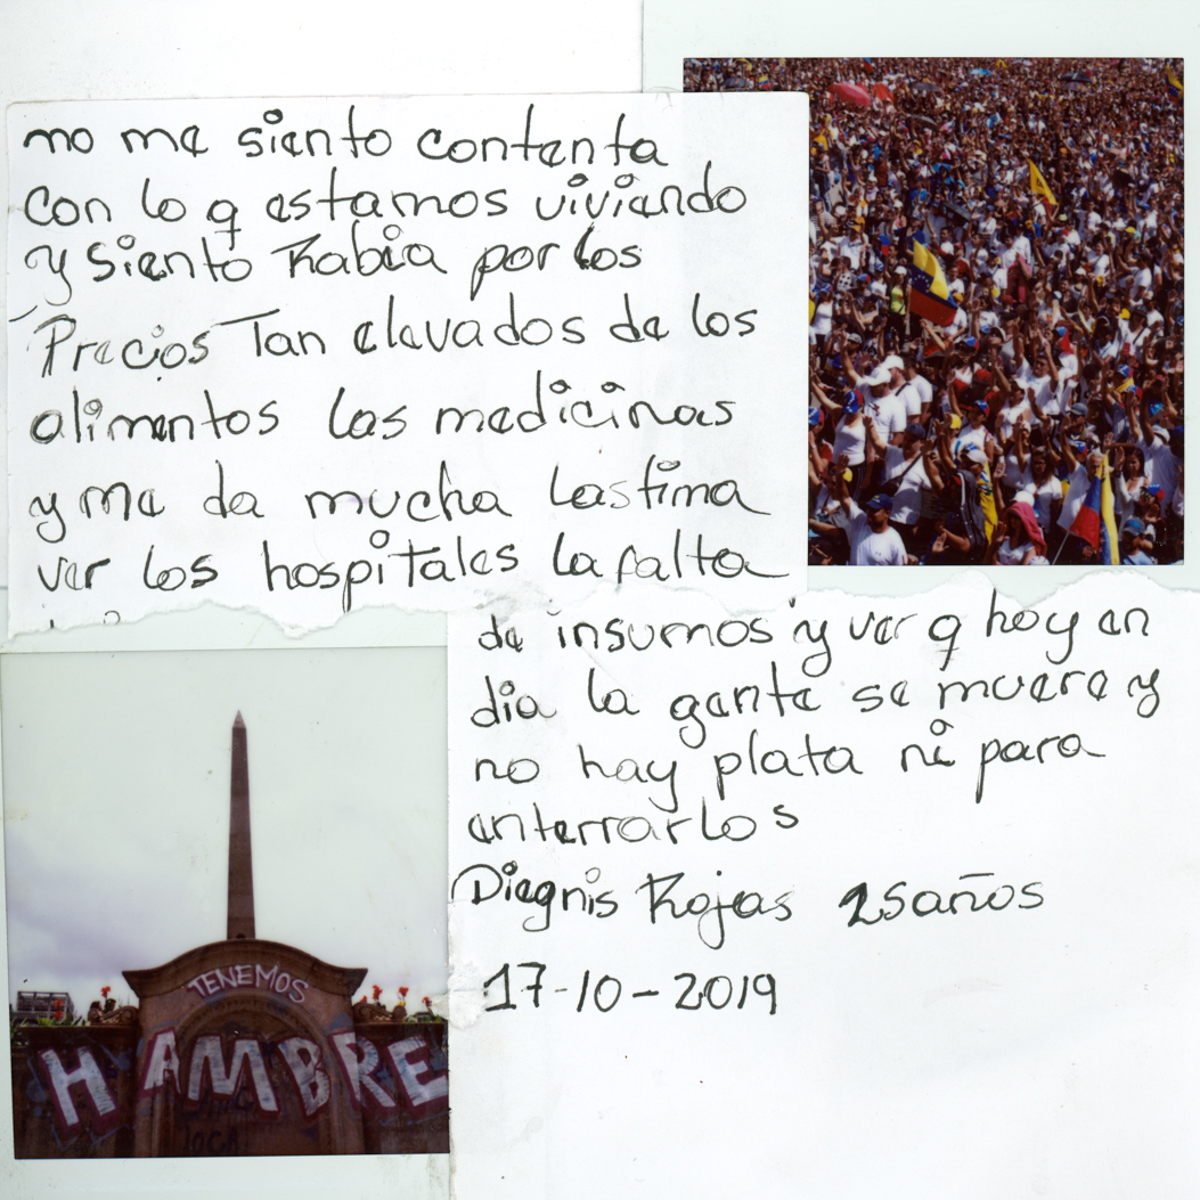 no me siento contenta
con lo q estamos viviendo
y siento Rabia por los
Precios Tan elevados de los
alimentos las medicinas
y me da mucha lastima
ver los hospitales la falta
de insumos y ver q hoy en
dia la gente se muere y
no hay plata ni para
enterrarlos
Diegnis Rojas 25 años
17-10-2019
TENEMOS
HAMBRE